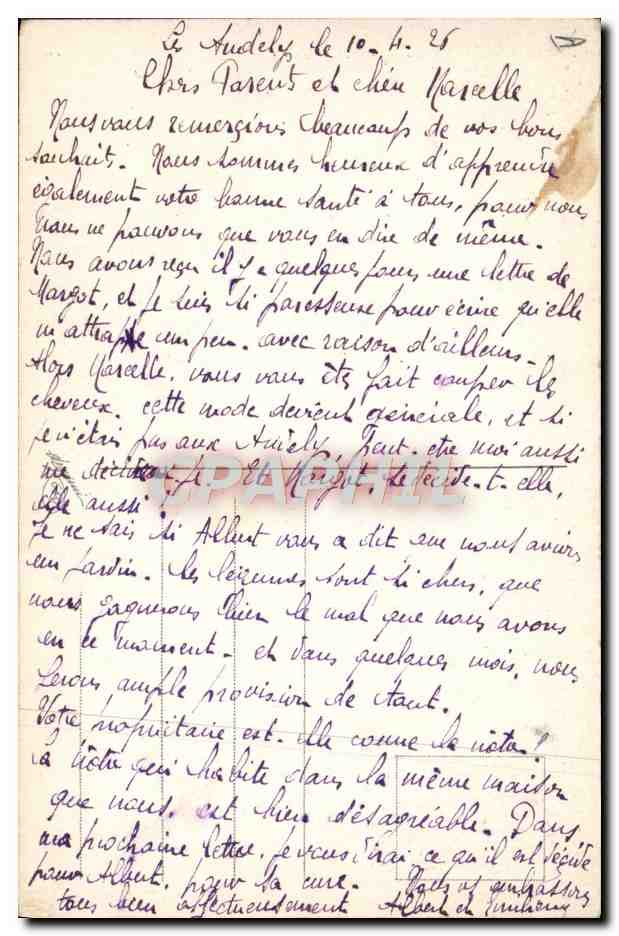 Les Andelys le 10-4-26
Chers Parents et chère Marcelle
Nous vous remercions beaucoup de vos bons
souhaits. Nous sommes heureux d'apprendre
également votre bonne santé à tous, pour nous
nous ne pouvons que vous en dire de même.
Nous avons reçu il y a quelques jours une lettre de
Margot, et je suis si paresseuse pour écrire qu'elle
m'attrape un peu. avec raison d'ailleurs.
Alors Marcelle, vous vous êtes fait couper les
cheveux. cette mode devient générale, et si
je n'étais pas aux Andelys, Peut-etre moi aussi
me déciderais-je. Et Margot, se décide-t-elle,
elle aussi?
CPAPHIL
Je ne sais si Albert vous a dit que nous avions
un jardin. Les légumes sont si chers, que
nous gagnerons bien le mal que nous avons
en ce moment - et dans quelques mois, nous
ferons ample provision de tout.
Votre propriétaire est-elle comme la nôtre?
la nôtre qui habite dans la même maison
que nous. est bien désagréable. Dans
ma prochaine lettre, je vous dirai ce qu'il est décidé
pour Albert, pour sa cure. Nous vs embrassons
tous bien affectueusement Albert et